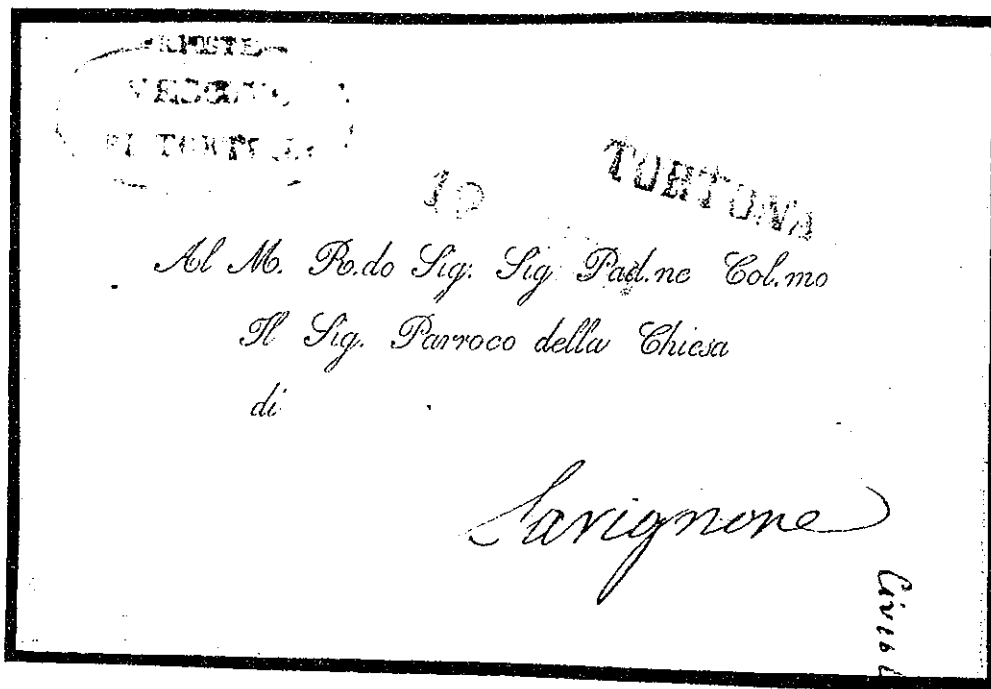 TORTONA
Al M. R.do Sig. Sig. Pad.ne Col.mo
Il Sig. Parroco della Chiesa
di
Savignone